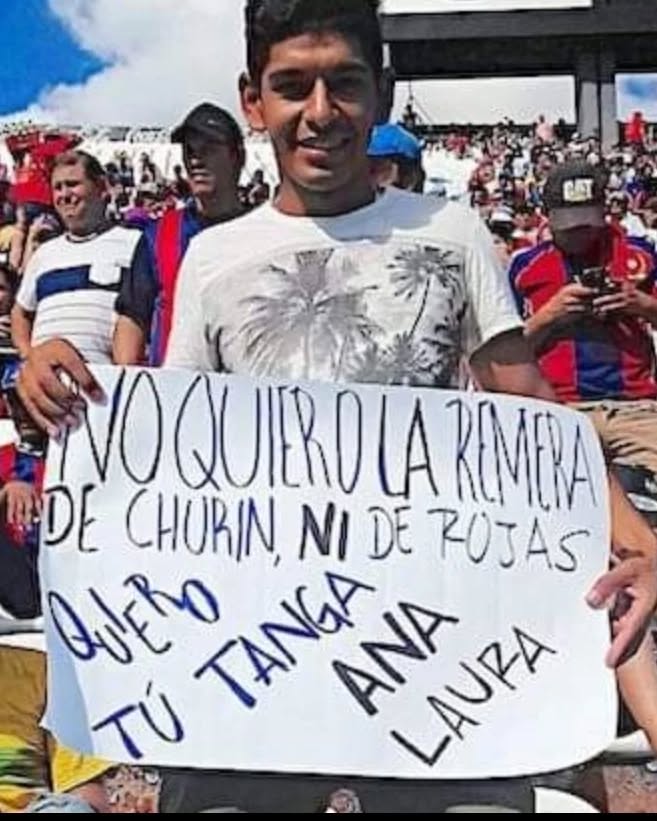 NO QUIERO LA REMERA
DE CHURIN, NI DE ROJAS
QUIERO
TÚ TANGA
ANA
LAURA
CAT